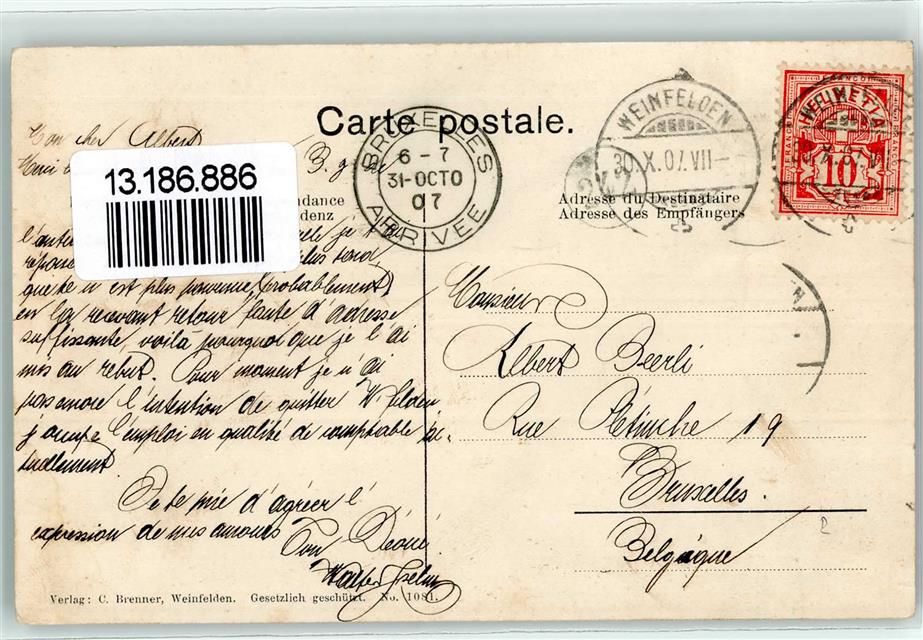 Carte postale.
Mon cher Albert
Merci
13.186.886
ndance
denz
BRUXELLES
6 - 7
31-OCTO
07
ARRIVÉE
WEINFELDEN
30.X.07.VII-
HELVETIA
FRANCO
10
Adresse du Destinataire
Adresse des Empfängers
je t'ai
plus tard,
que te n'est plus parvenue, (probablement)
en la recevant retour faute d'adresse
suffissante, voilà pourquoi que je l'ai
mis au rebut. Pour moment je n'ai
pas encore l'intention de quitter W'felden
j'occupe l'emploi en qualité de comptable ac-
tuellement.
Je te prie d'agréer l'
expression de mes amours
Ton Dévoué
Walter
Monsieur
Albert Beerli
Rue 19
Bruxelles.
Belgique
Verlag: C. Brenner, Weinfelden. Gesetzlich geschützt. No. 1081.